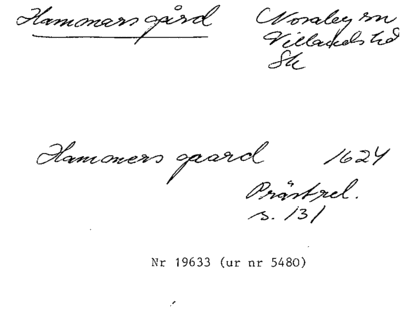 Hammars gård Nosaby sn
Villands hd
Sk
Hammers gaard 1624
Prästrel.
s. 131
Nr 19633 (ur nr 5480)